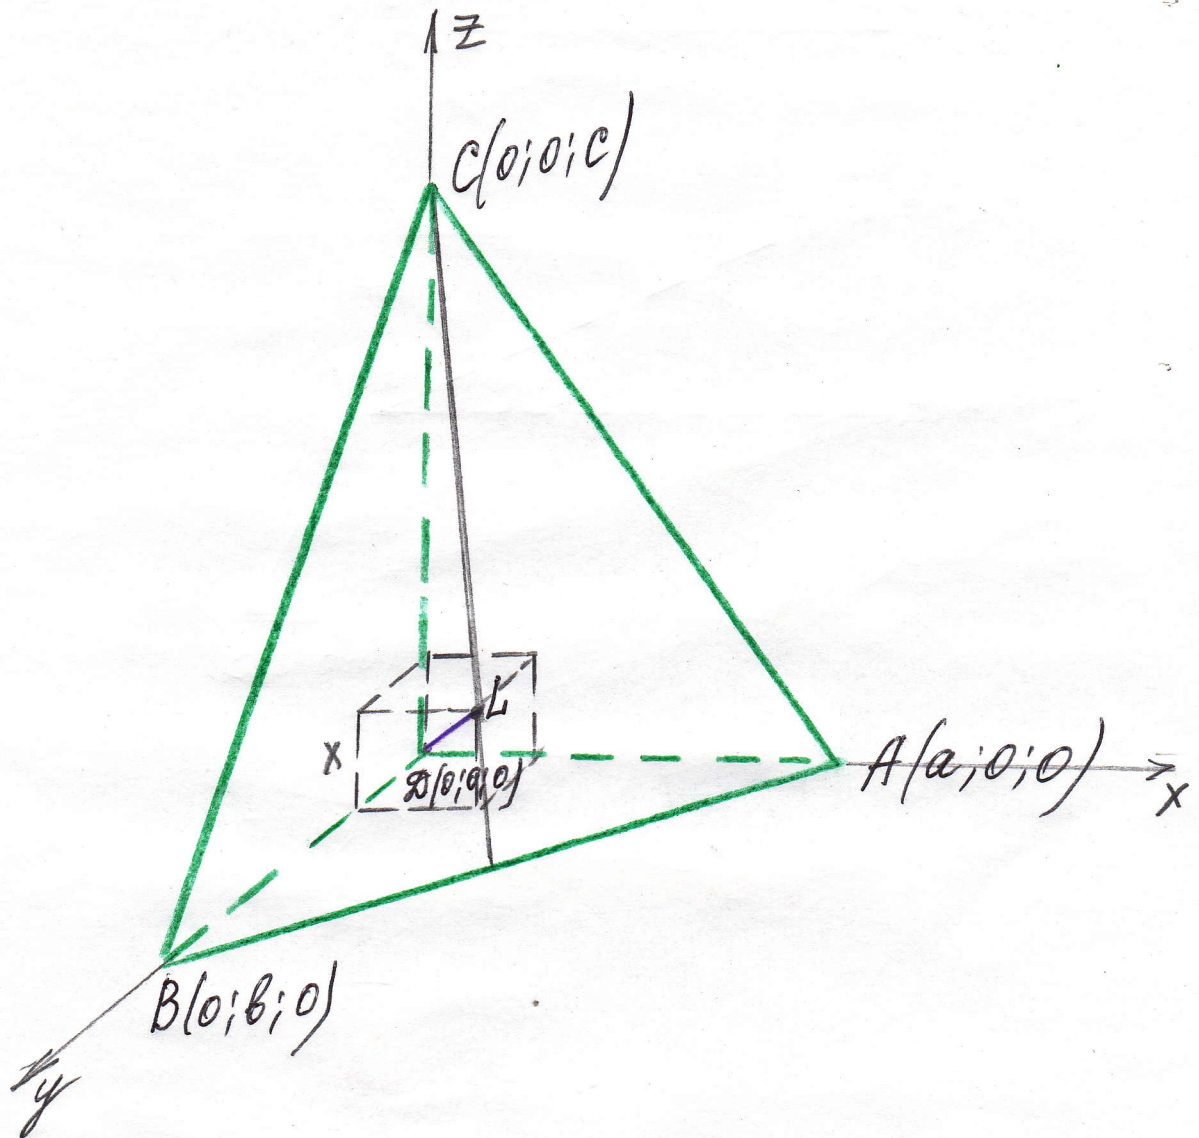 z
C(0;0;c)
L
x
D(0;0;0)
A(a;0;0)
x
B(0;в;0)
y